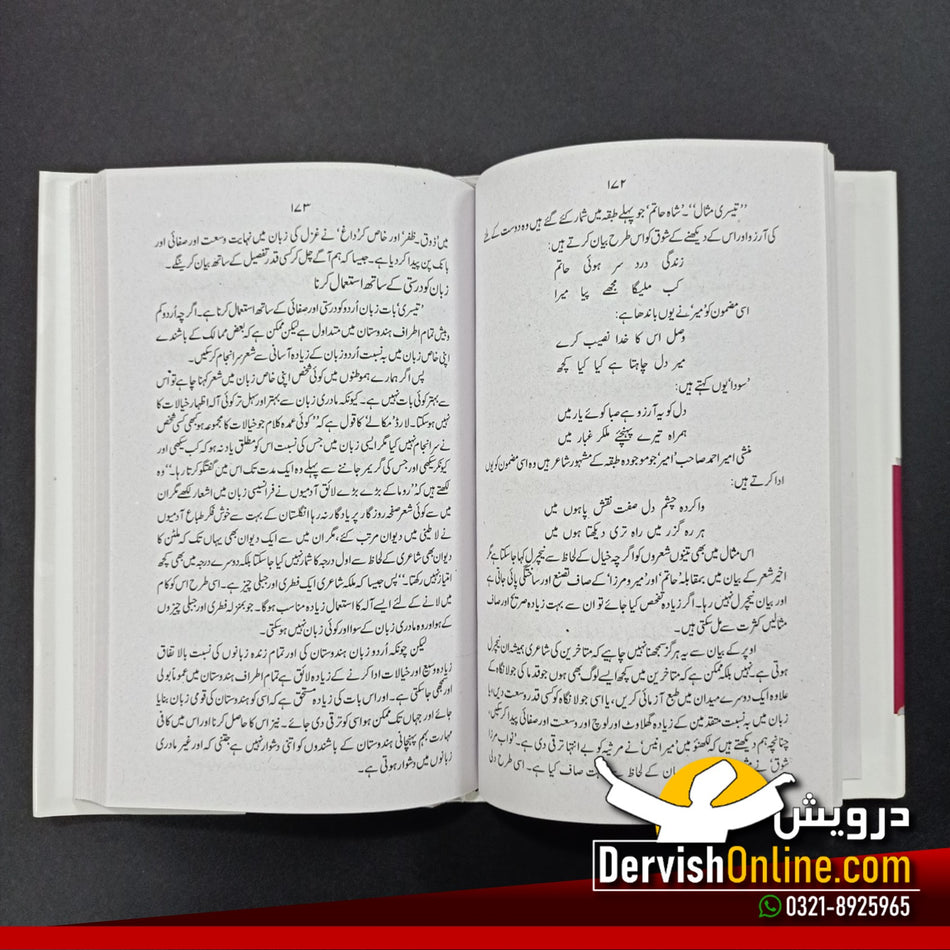 ۱۷۲
”تیسری مثال“۔ ’شاہ حاتم‘ جو پہلے طبقہ میں شمار کئے گئے ہیں وہ دوست کے ملنے
کی آرزو اور اس کے دیکھنے کے شوق کو اس طرح بیان کرتے ہیں:
زندگی درد سر ہوئی حاتم
کب ملیگا مجھے پیا میرا
اسی مضمون کو ’میر‘ نے یوں باندھا ہے:
وصل اس کا خدا نصیب کرے
میر دل چاہتا ہے کیا کیا کچھ
’سودا‘ یوں کہتے ہیں:
دل کو یہ آرزو ہے صبا کوئے یار میں
ہمراہ تیرے پہنچئے ملکر غبار میں
منشی امیر احمد صاحب ’امیر‘ جو موجودہ طبقہ کے مشہور شاعر ہیں وہ اسی مضمون کو یوں
ادا کرتے ہیں:
وا کردہ چشم دل صفت نقش پا ہوں میں
ہر رہ گزر میں راہ تری دیکھتا ہوں میں
اس مثال میں بھی تینوں شعروں کو اگرچہ خیال کے لحاظ سے نیچرل کہا جا سکتا ہے مگر
اخیر شعر کے بیان میں بمقابلہ ’حاتم‘ اور ’میر و مرزا‘ کے صاف تصنع اور ساختگی پائی جاتی ہے
اور بیان نیچرل نہیں رہا۔ اگر زیادہ تفحص کیا جائے تو ان سے بہت زیادہ صریح اور صاف
مثالیں کثرت سے مل سکتی ہیں۔
اوپر کے بیان سے یہ ہرگز سمجھنا نہیں چاہیے کہ متاخرین کی شاعری ہمیشہ ان نیچرل
ہوتی ہے۔ نہیں بلکہ ممکن ہے کہ متاخرین میں کچھ ایسے لوگ بھی ہوں جو قدما کی جولانگاہ کے
علاوہ ایک دوسرے میدان میں طبع آزمائی کریں، یا اسی جولانگاہ کو کسی قدر وسعت دیں، یا
زبان میں بہ نسبت متقدمین کے زیادہ گھلاوٹ اور لوچ اور وسعت اور صفائی پیدا کر سکیں،
چنانچہ ہم دیکھتے ہیں کہ لکھنؤ میں ’میر انیس‘ نے مرثیہ کو بے انتہا ترقی دی ہے۔ ’نواب مرزا
شوق‘ نے کے لحاظ سے بہت صاف کیا ہے۔ اسی طرح دلی
۱۷۳
میں ’ذوق۔ ظفر‘ اور خاص کر ’داغ‘ نے غزل کی زبان میں نہایت وسعت اور صفائی اور
بانک پن پیدا کر دیا ہے۔ جیسا کہ ہم آگے چل کر کسی قدر تفصیل کے ساتھ بیان کرینگے۔
زبان کو درستی کے ساتھ استعمال کرنا
’تیسری‘ بات زبان اُردو کو درستی اور صفائی کے ساتھ استعمال کرنا ہے۔ اگرچہ اُردو کم
و بیش تمام اطراف ہندوستان میں متداول ہے لیکن ممکن ہے کہ بعض ممالک کے باشندے
اپنی خاص زبان میں بہ نسبت اُردو زبان کے زیادہ آسانی سے شعر سرانجام کر سکیں۔
پس اگر ہمارے ہموطنوں میں کوئی شخص اپنی خاص زبان میں شعر کہنا چاہے تو اُس
سے بہتر کوئی بات نہیں ہے۔ کیونکہ مادری زبان سے بہتر اور سہل تر کوئی آلہ اظہار خیالات کا
نہیں ہو سکتا۔ لارڈ مکالے کا قول ہے کہ ”کوئی عمدہ کلام جو خیالات کا مجموعہ ہو کبھی کسی شخص
نے سرانجام نہیں کیا مگر ایسی زبان میں جس کی نسبت اس کو مطلق یاد نہ ہو کہ کب سیکھی اور
کیونکر سیکھی اور جس کی گریمر جاننے سے پہلے وہ ایک مدت تک اس میں گفتگو کرتا رہا۔“ وہ
لکھتے ہیں کہ ”روما کے بڑے بڑے لائق آدمیوں نے فرانسیسی زبان میں اشعار لکھے مگر ان
میں سے کوئی شعر صفحہ روزگار پر یادگار نہ رہا انگلستان کے بہت سے خوش فکر طباع آدمیوں
نے لاطینی میں دیوان مرتب کئے، مگر ان میں سے ایک دیوان بھی یہاں تک کہ ملٹن کا
دیوان بھی شاعری کے لحاظ سے اول درجہ کا شمار نہیں کیا جا سکتا بلکہ دوسرے درجہ میں بھی کچھ
امتیاز نہیں رکھتا۔“ پس جیسا کہ ملکہ شاعری ایک فطری اور جبلی چیز ہے۔ اسی طرح اس کو کام
میں لانے کے لئے ایسے آلہ کا استعمال زیادہ مناسب ہوگا۔ جو بمنزلہ فطری اور جبلی چیزوں
کے ہو اور وہ مادری زبان کے سوا اور کوئی زبان نہیں ہو سکتی۔
لیکن چونکہ اُردو زبان ہندوستان کی اور تمام زندہ زبانوں کی نسبت بالاتفاق
زیادہ وسیع اور خیالات ادا کرنے کے زیادہ لائق ہے تمام اطراف ہندوستان میں عموماً بولی
اور سمجھی جا سکتی ہے۔ اور اس بات کی زیادہ مستحق ہے کہ اسی کو ہندوستان کی قومی زبان بنایا
جائے اور جہاں تک ممکن ہو اسی کو ترقی دی جائے۔ نیز اس کا حاصل کرنا اور اس میں کافی
مہارت بہم پہنچانی ہندوستان کے باشندوں کو اتنی دشوار نہیں ہے جتنی کہ اور غیر مادری
زبانوں میں دشوار ہوتی ہے۔
درویش
DervishOnline.com
0321-8925965